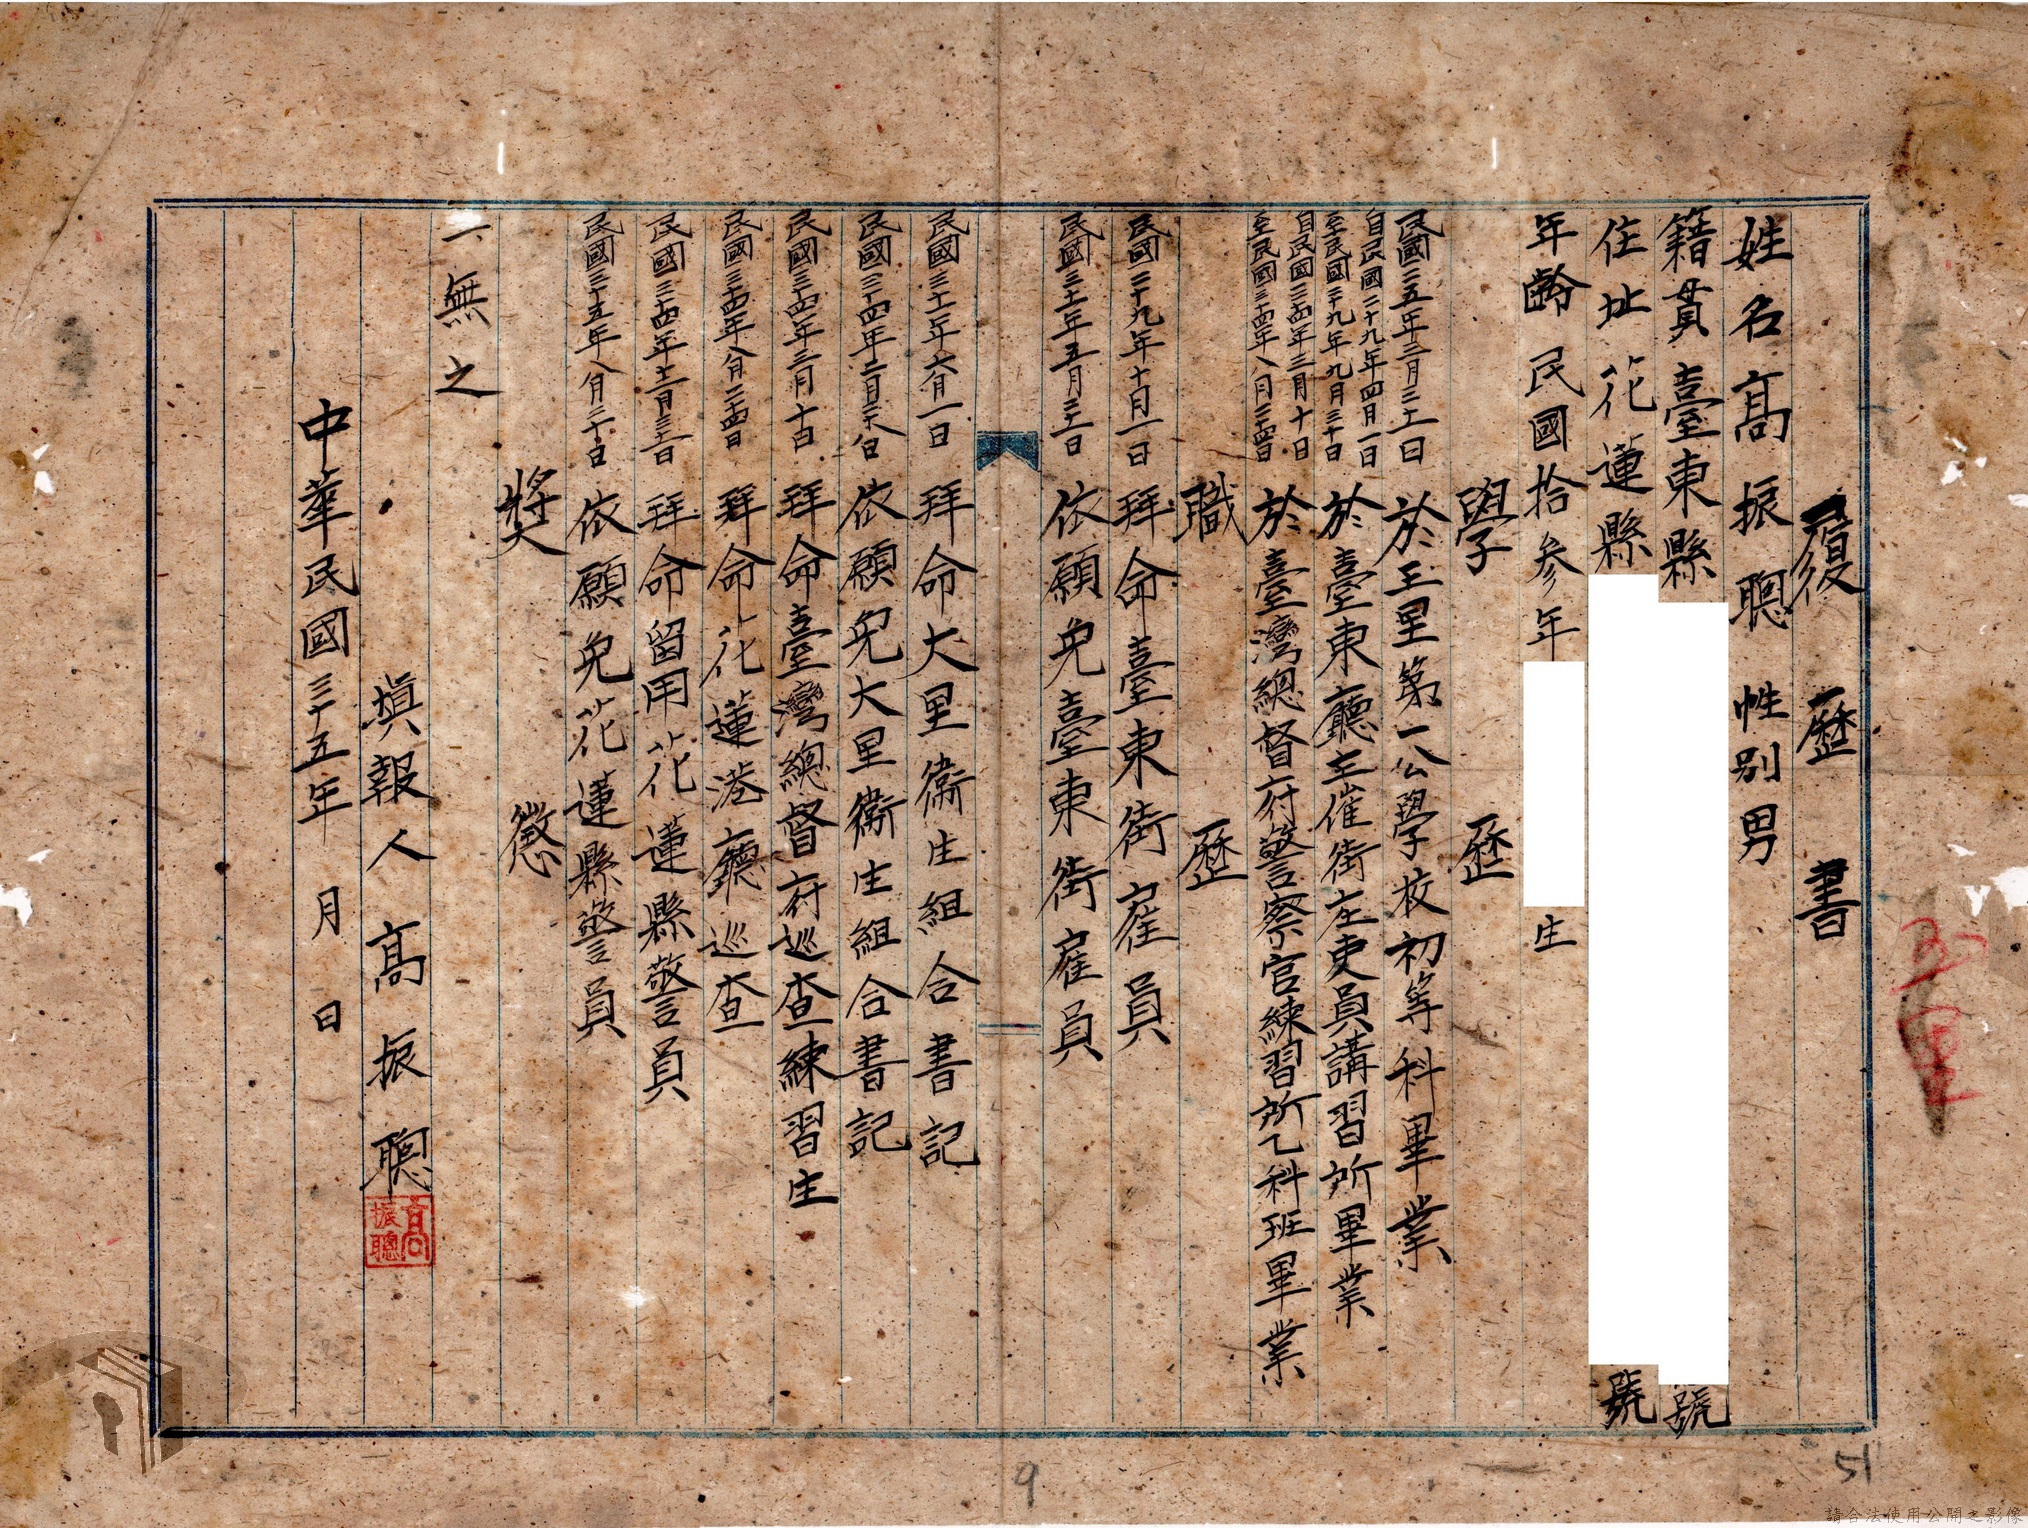 履歷書
姓名高振聰 性別男
籍貫臺東縣 號
住址花蓮縣 號
年齡 民國拾參年 生
學歷
民國二五年三月二十一日 於玉里第一公學校初等科畢業
自民國二十九年四月一日
至民國二十九年九月三十日 於臺東廳主催街庄吏員講習所畢業
自民國三四年三月十日
至民國三四年八月二十四日 於臺灣總督府警察官練習所乙科班畢業
職歷
民國二十九年十月一日 拜命臺東街雇員
民國三十一年五月三十一日 依願免臺東街雇員
民國三十一年六月一日 拜命大里衛生組合書記
民國三十四年二月 日 依願免大里衛生組合書記
民國三十四年三月十日 拜命臺灣總督府巡查練習生
民國三十四年八月二十四日 拜命花蓮港廳巡查
民國三十四年十二月三十一日 拜命留用花蓮縣警員
民國三十五年八月三十日 依願免花蓮縣警員
獎懲
一、無之
填報人高振聰
高振聰
中華民國三十五年 月 日
玉里
9
51
請合法使用公開之影像